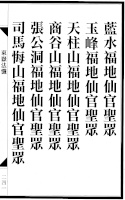 藍水福地仙官聖眾
玉峰福地仙官聖眾
天柱山福地仙官聖眾
商谷山福地仙官聖眾
張公洞福地仙官聖眾
司馬悔山福地仙官聖眾